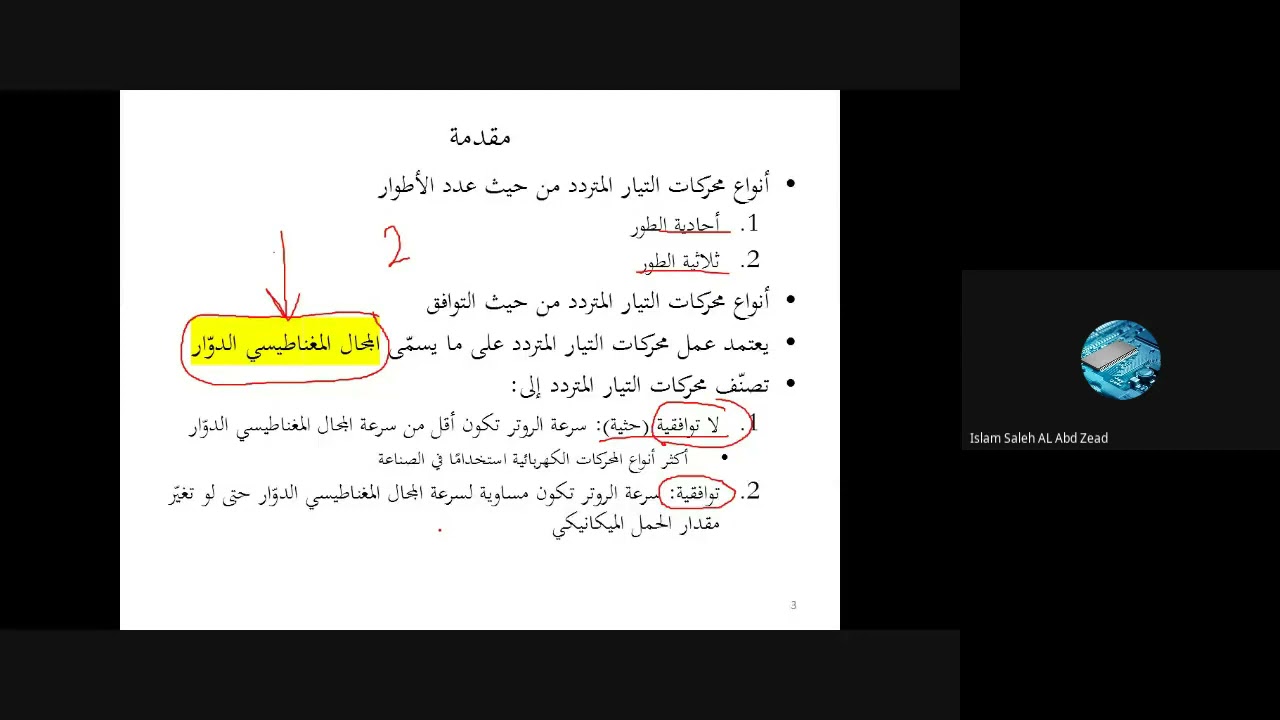 مقدمة
• أنواع محركات التيار المتردد من حيث عدد الأطوار
1. أحادية الطور
2. ثلاثية الطور
2
• أنواع محركات التيار المتردد من حيث التوافق
• يعتمد عمل محركات التيار المتردد على ما يسمّى المجال المغناطيسي الدوّار
• تصنّف محركات التيار المتردد إلى:
1. لا توافقية (حثية): سرعة الروتر تكون أقل من سرعة المجال المغناطيسي الدوّار
• أكثر أنواع المحركات الكهربائية استخدامًا في الصناعة
2. توافقية: سرعة الروتر تكون مساوية لسرعة المجال المغناطيسي الدوّار حتى لو تغيّر
مقدار الحمل الميكانيكي
3
Islam Saleh AL Abd Zead